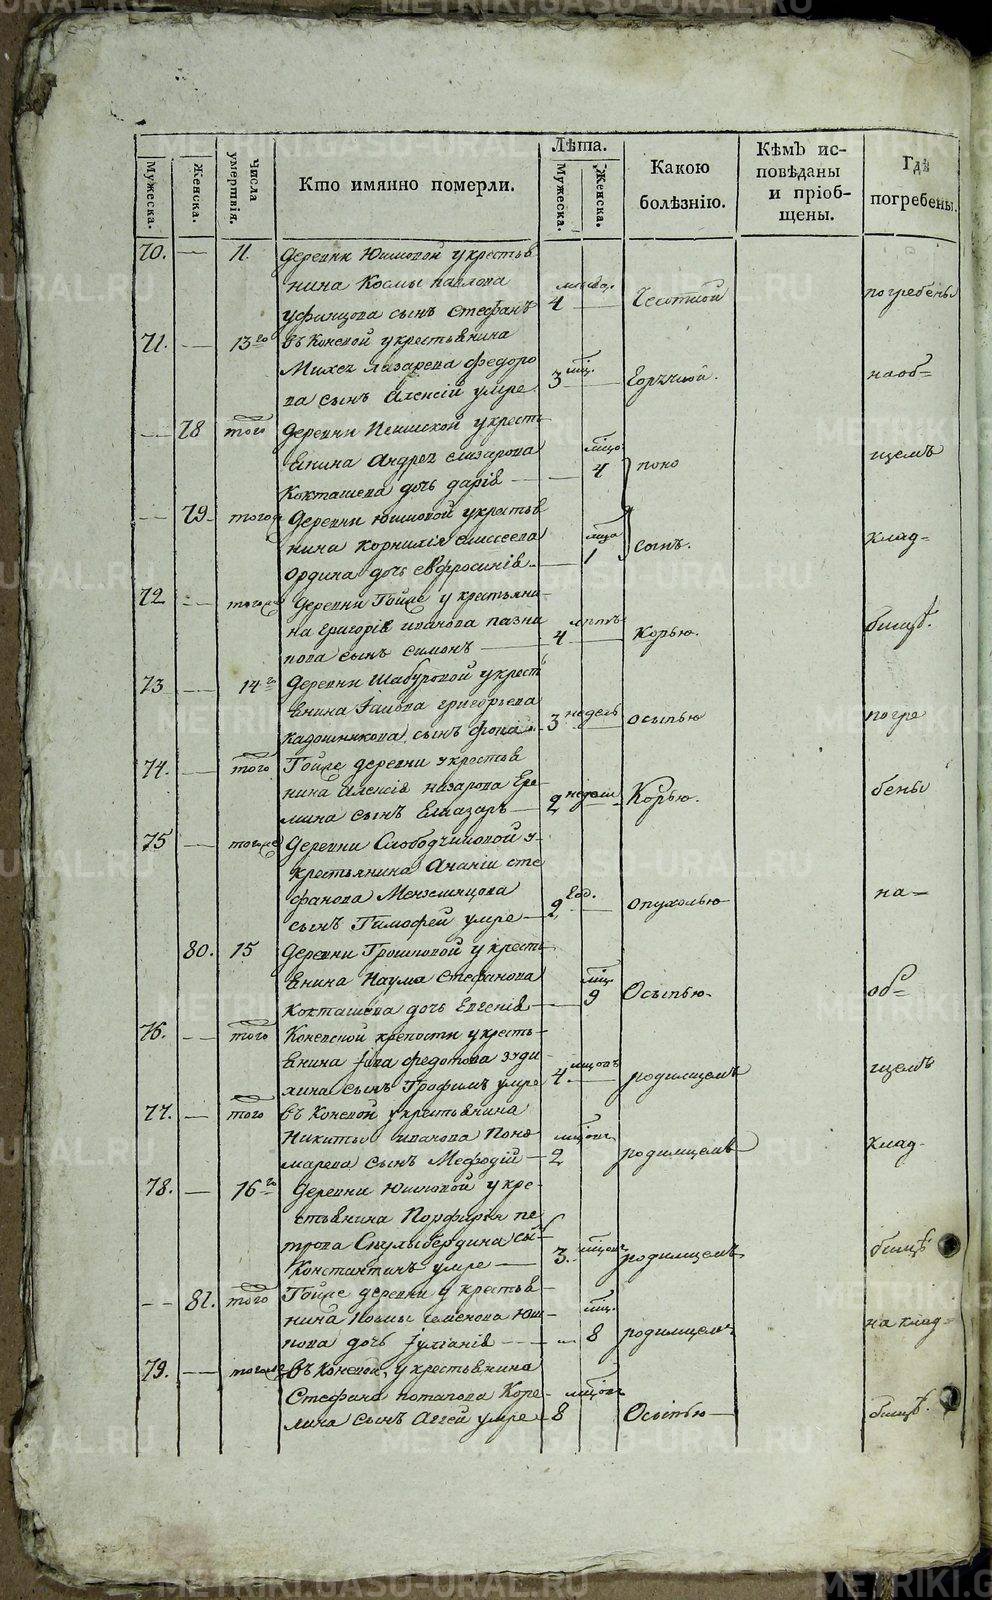 Мужеска. Женска. Числа умертвія. Кто имянно померли. Лѣта. Мужеска. Женска. Какою болѣзнію. Кѣмъ исповѣданы и пріобщены. Где погребены.
70. — 11. деревни Юшковой у крестья
нина Космы павлова
уфинцова сынъ Стефанъ 4 Чесоткой погребены
71. — 13го въ Коневой у крестьянина
Михея лазарева федоро
ва сынъ Алексій умре 3 мц. Горячкой. на об=
— 78 того деревни у кресть
янина Андрея елизарова
Кокташева дочь дарія — 4 поно щемъ
— 79. тогоже Деревни юшковой у крестья
нина Корнилія елисеева
ордина дочь евфросинія — 1 сомъ. клад=
72 — тогоже деревни Тойже у крестьяни=
на григорія иванова
сынъ симонъ — 4 Корью. бищѣ.
73 — 14го деревни Шабуровой у кресть
янина Іакова григорьева
Кадошникова сынъ фока 3 недель осыпью погре
74. — того Тойже деревни у крестья
нина Алексія назарова Ере
мина сынъ Елиазаръ — 2 недели Корью. бены
75 — тогоже Деревни Слободчиковой у
крестьянина Ананіи сте
фанова Мензелинцова
сынъ Тимофей умре — 2 Год. опухолью на=
80. 15 деревни Грошковой у кресть
янина Наума Стефанова
Кокташева дочь Евгенія — 9 Осыпью. об=
76. — того Коневской крепости у кресть=
янина Іова федотова зуди
хина сынъ Трофимъ умре 4. родимцемъ щемъ
77. — того въ Коневой у крестьянина
Никиты иванова Поно
марева сынъ Мефодій — 2 родимцемъ клад=
78. — 16го Деревни Юшковой у кре=
стьянина Порфирья пе
трова сы
Константинъ умре — 3. родимцемъ бищѣ
— 81. того Тойже деревни у крестья
нина Козмы семенова Юш
кова дочь Іуліанія — 8 родимцемъ на клад=
79. — тогоже въ Коневой, у крестьянина
Стефана потапова Коре=
лина сынъ Аггей умре 8 Осыпью — бищѣ.
METRIKI.GASO-URAL.RU